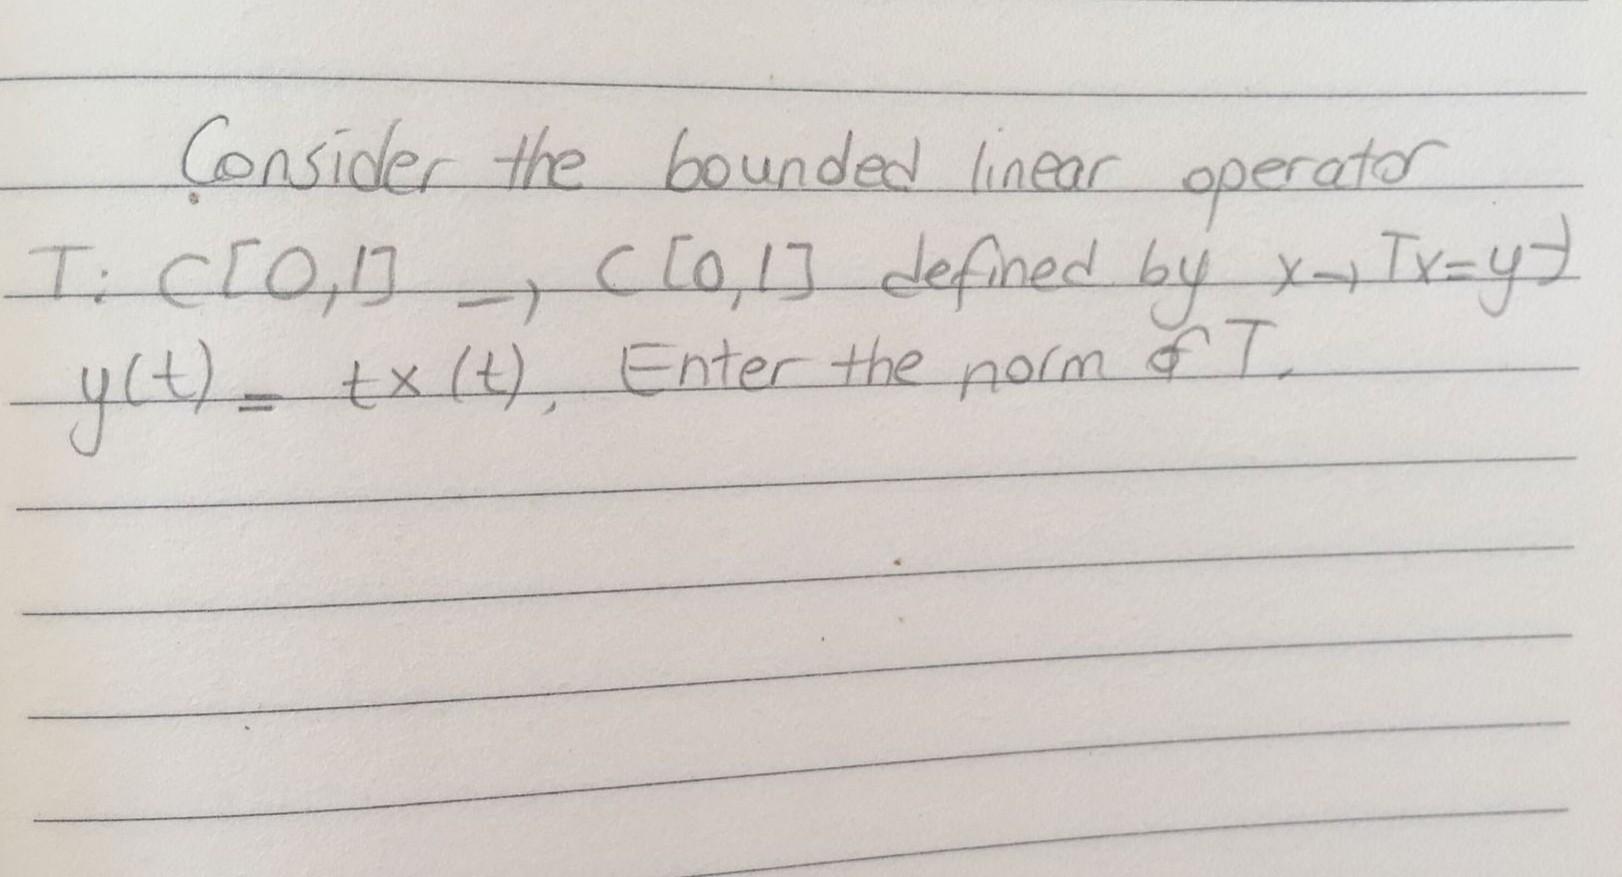 Consider the bounded linear operator
T: C[0,1] → C[0,1] defined by x→Tx=y∋
y(t) = tx(t). Enter the norm of T.